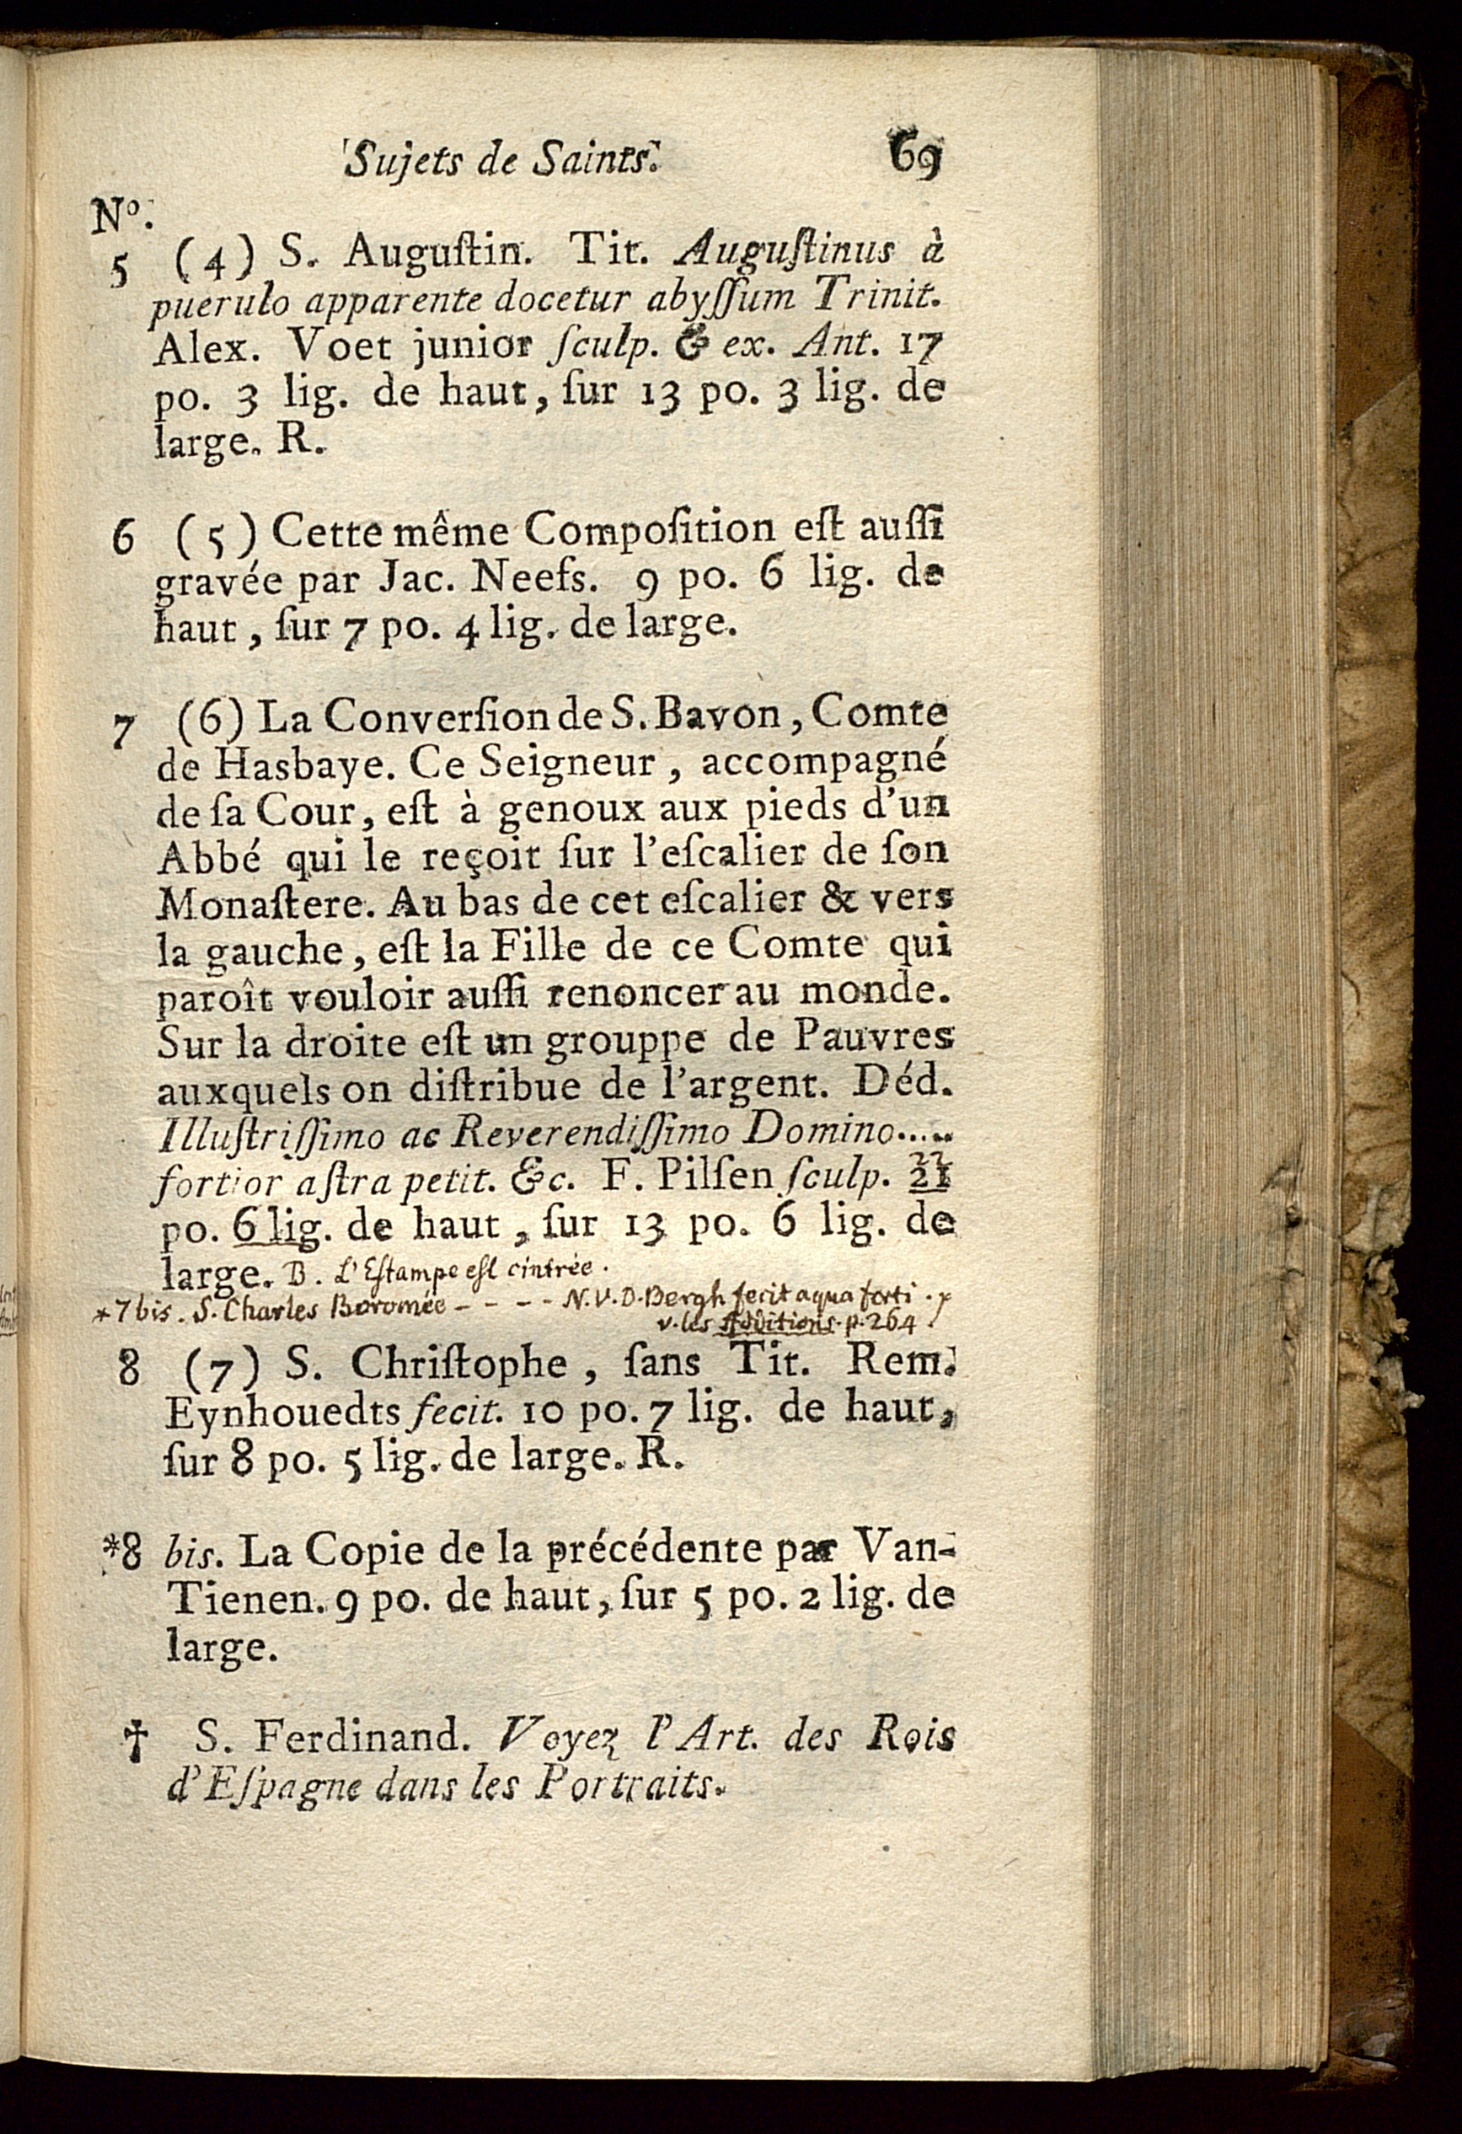 Sujets de Saints. 69
Nº.
5 (4) S. Auguſtin. Tit. Auguſtinus à
puerulo apparente docetur abyſſum Trinit.
Alex. Voet junior ſculp. & ex. Ant. 17
po. 3 lig. de haut, ſur 13 po. 3 lig. de
large. R.
6 (5) Cette même Compoſition eſt auſſi
gravée par Jac. Neefs. 9 po. 6 lig. de
haut, ſur 7 po. 4 lig. de large.
7 (6) La Converſion de S. Bavon, Comte
de Hasbaye. Ce Seigneur, accompagné
de ſa Cour, eſt à genoux aux pieds d'un
Abbé qui le reçoit ſur l'eſcalier de ſon
Monaſtere. Au bas de cet eſcalier & vers
la gauche, eſt la Fille de ce Comte qui
paroît vouloir auſſi renoncer au monde.
Sur la droite eſt un grouppe de Pauvres
auxquels on diſtribue de l'argent. Déd.
Illuſtriſſimo ac Reverendiſſimo Domino.....
22
fortior aſtra petit. &c. F. Pilſen ſculp. 21
po. 6 lig. de haut, ſur 13 po. 6 lig. de
large. B. L'Eſtampe eſt cintrée.
*7 bis. S. Charles Boromée - - - - N.V.D. Bergh fecit aqua forti.
v. les Additions. p. 264.
8 (7) S. Chriſtophe, ſans Tit. Rem.
Eynhouedts fecit. 10 po. 7 lig. de haut,
ſur 8 po. 5 lig. de large. R.
*8 bis. La Copie de la précédente par Van-
Tienen. 9 po. de haut, ſur 5 po. 2 lig. de
large.
† S. Ferdinand. Voyez l'Art. des Rois
d'Eſpagne dans les Portraits.